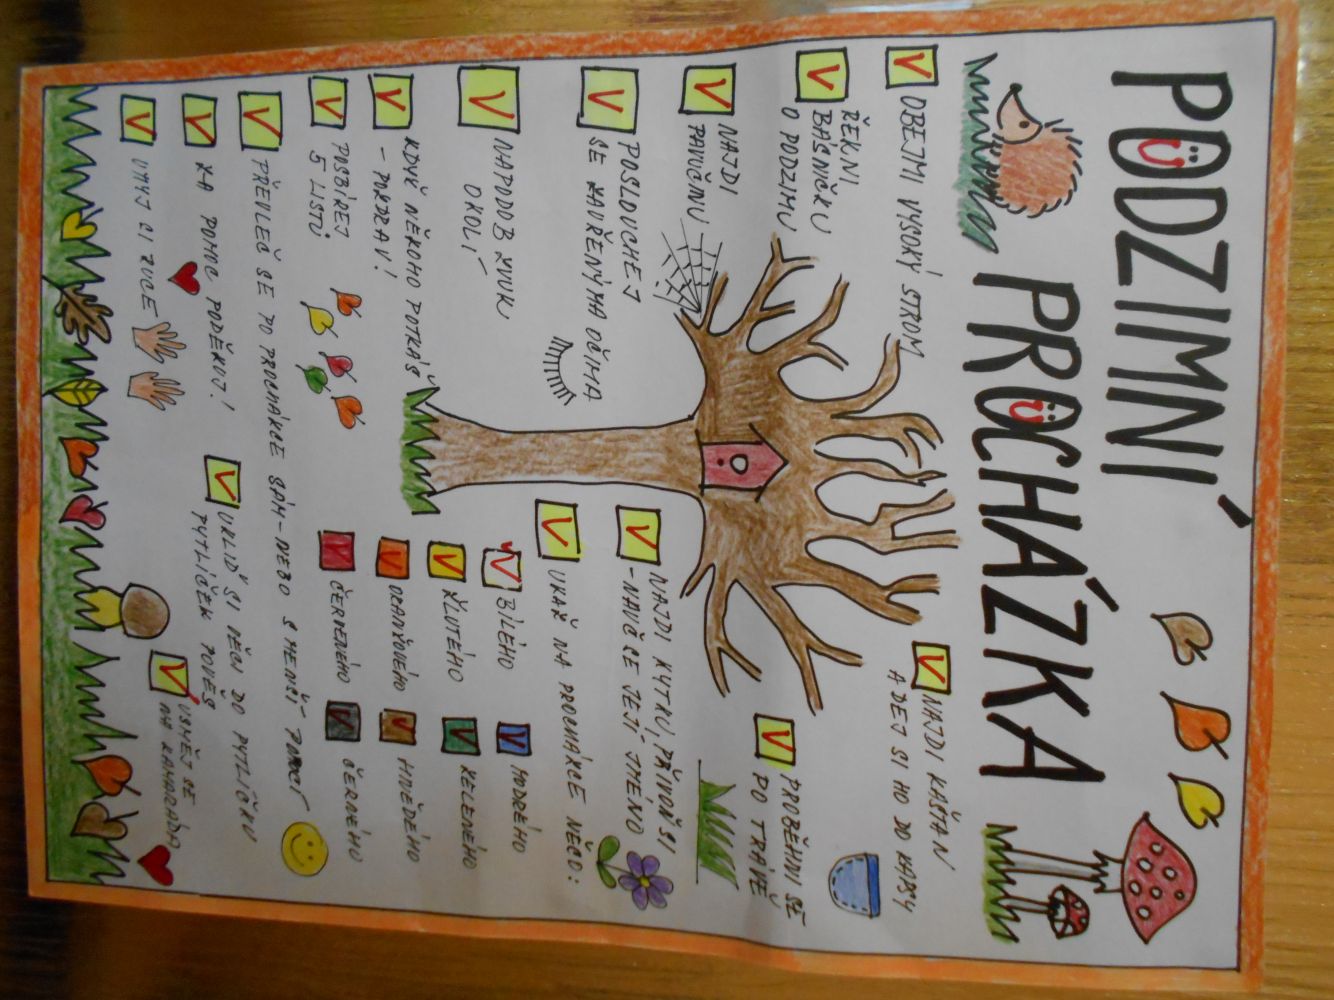 PODZIMNÍ
PROCHÁZKA
OBEJMI VYSOKÝ STROM
ŘEKNI
BÁSNIČKU
O PODZIMU
NAJDI
PAVUČINU
POSLOUCHEJ
SE ZAVŘENÝMA OČIMA
NAPODOB ZVUK
OKOLÍ
KDYŽ NĚKOHO POTKÁŠ
- POZDRAV!
POSBÍREJ
5 LISTŮ
NAJDI KAŠTAN
A DEJ SI HO DO KAPSY
PROBĚHNI SE
PO TRÁVĚ
NAJDI KYTKU, PŘIVOŇ SI
- NAUČ SE JEJÍ JMÉNO
UKAŽ NA PROCHÁZCE NĚCO:
BÍLÉHO
MODRÉHO
ŽLUTÉHO
ZELENÉHO
ORANŽOVÉHO
HNĚDÉHO
ČERVENÉHO
ČERNÉHO
PŘEVLEČ SE PO PROCHÁZCE SÁM - NEBO S MENŠÍ POMOCÍ
ZA POMOC PODĚKUJ!
UKLIĎ SI VĚCI DO PYTLÍČKU
PYTLÍČEK POVĚS
UMYJ SI RUCE
USMĚJ SE
NA KAMARÁDA